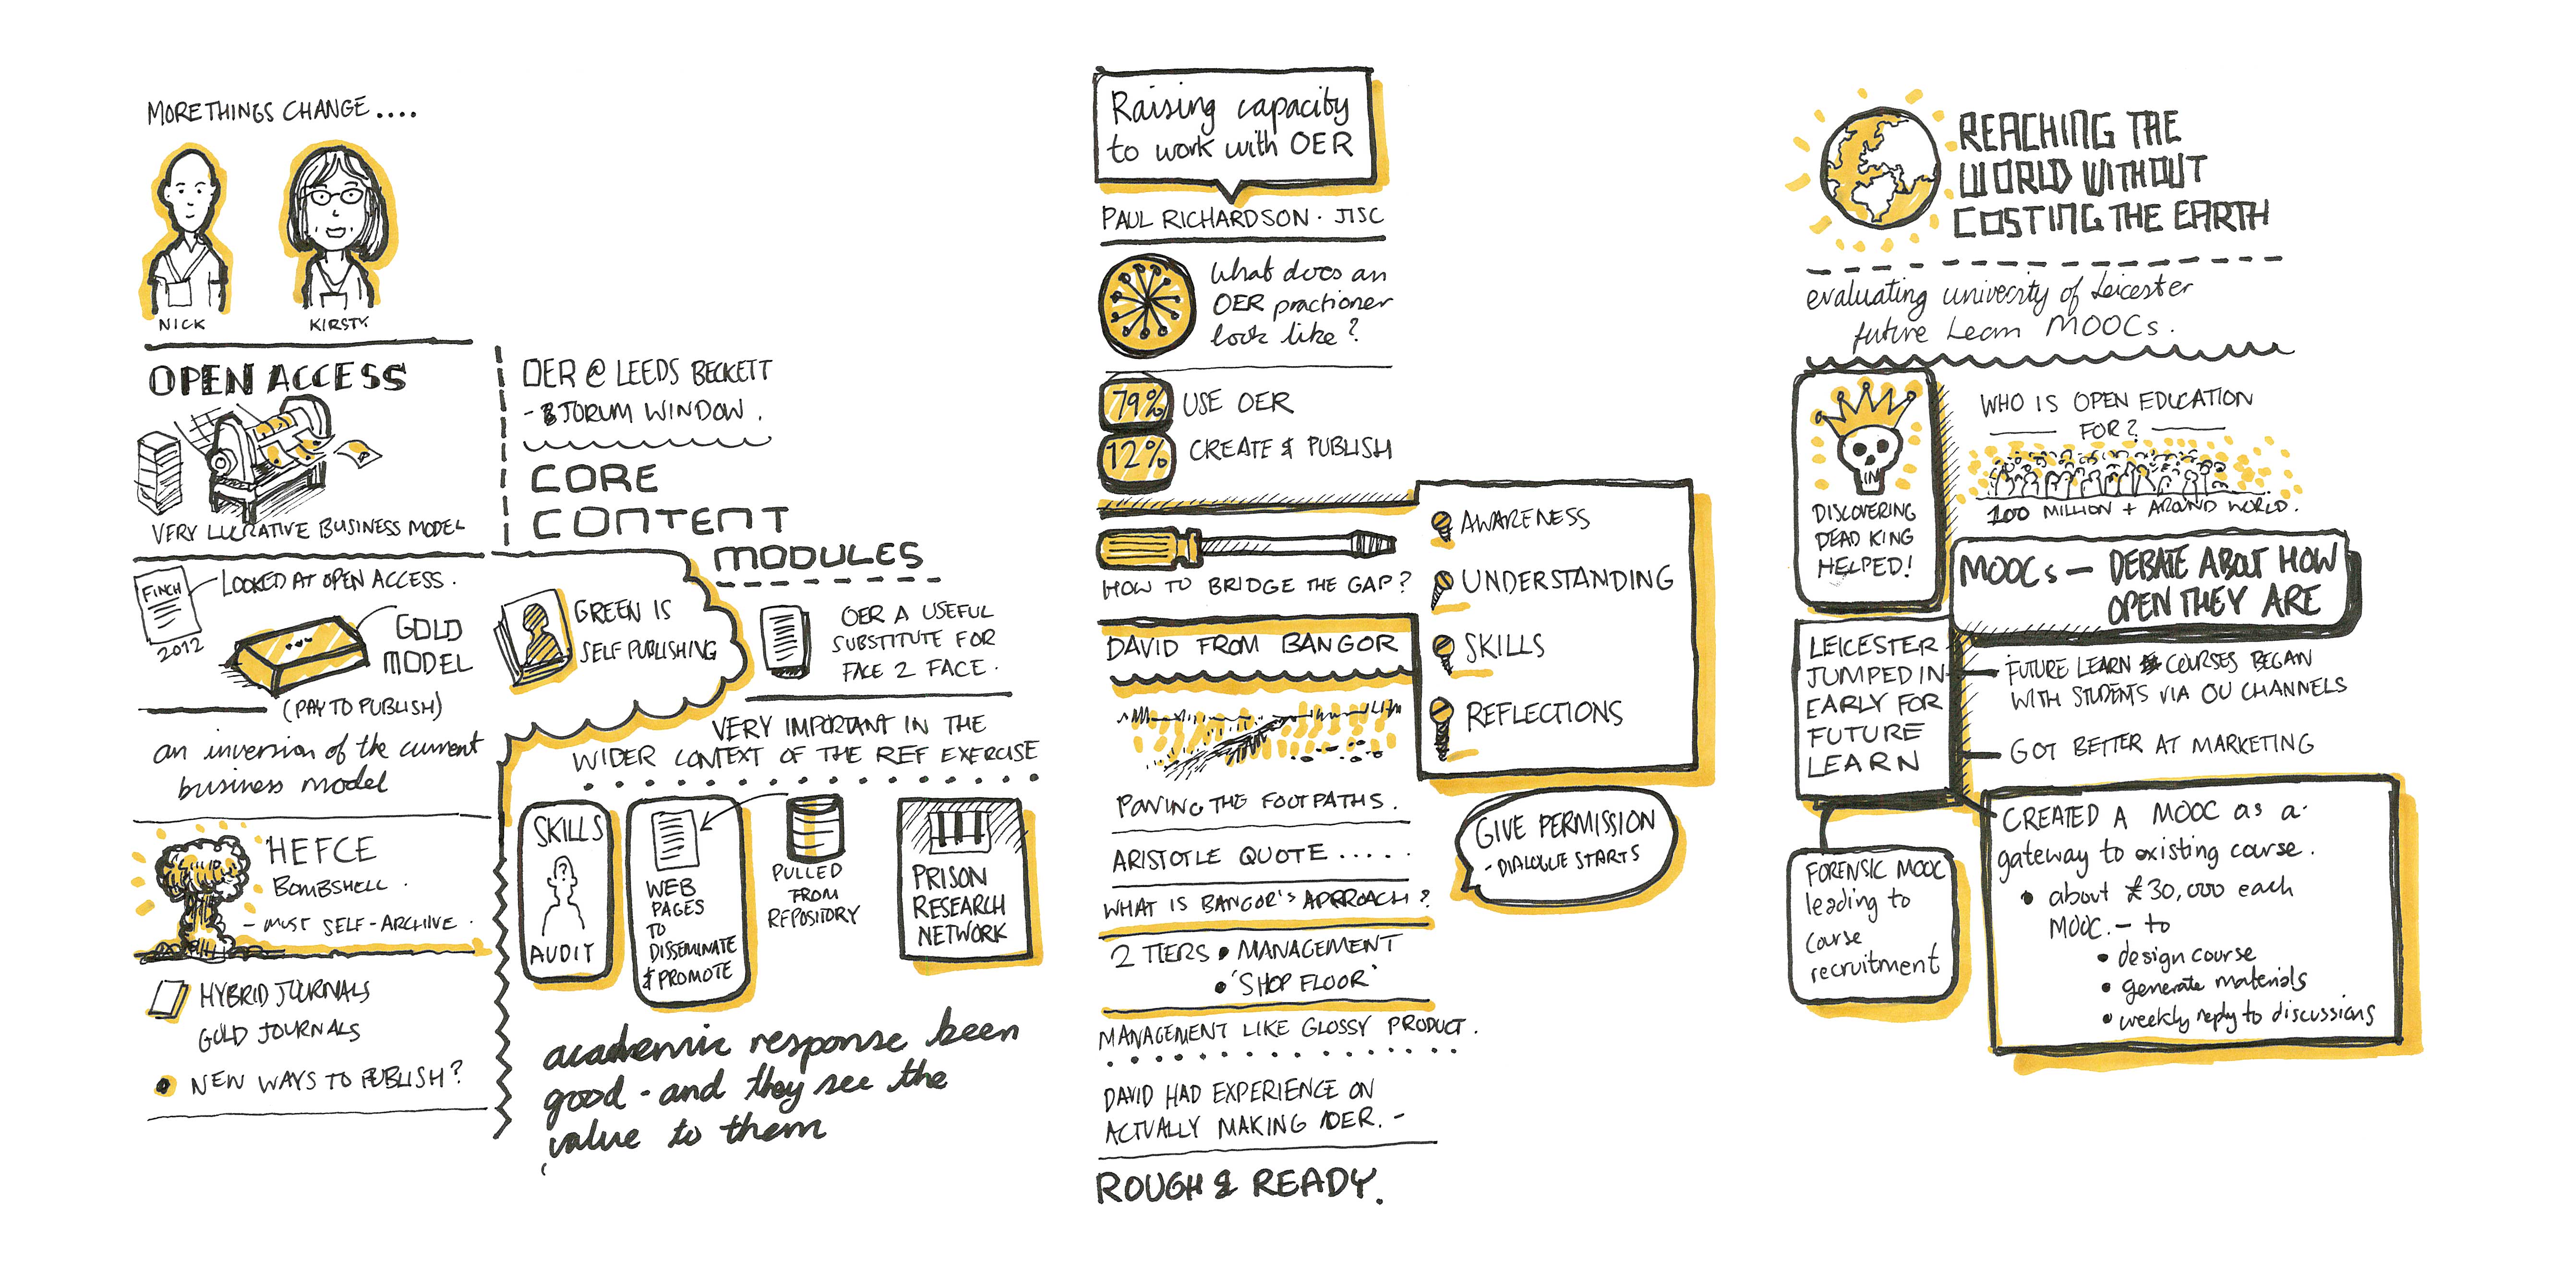 MORE THINGS CHANGE....
NICK
KIRSTY
OPEN ACCESS
VERY LUCRATIVE BUSINESS MODEL
FINCH
2012
LOOKED AT OPEN ACCESS.
GOLD
MODEL
(PAY TO PUBLISH)
an inversion of the current
business model
HEFCE
BOMBSHELL.
- MUST SELF-ARCHIVE.
HYBRID JOURNALS
GOLD JOURNALS
NEW WAYS TO PUBLISH?
OER @ LEEDS BECKETT
- JORUM WINDOW.
CORE
CONTENT
MODULES
GREEN IS
SELF PUBLISHING
OER A USEFUL
SUBSTITUTE FOR
FACE 2 FACE.
VERY IMPORTANT IN THE
WIDER CONTEXT OF THE REF EXERCISE
SKILLS
?
AUDIT
WEB
PAGES
TO
DISSEMINATE
& PROMOTE
PULLED
FROM
REPOSITORY
PRISON
RESEARCH
NETWORK
academic response been
good - and they see the
value to them
Raising capacity
to work with OER
PAUL RICHARDSON · JISC
What does an
OER practioner
look like?
79% USE OER
12% CREATE & PUBLISH
HOW TO BRIDGE THE GAP?
AWARENESS
UNDERSTANDING
SKILLS
REFLECTIONS
DAVID FROM BANGOR
PAVING THE FOOTPATHS.
GIVE PERMISSION
- DIALOGUE STARTS
ARISTOTLE QUOTE.....
WHAT IS BANGOR'S APPROACH?
2 TIERS • MANAGEMENT
• 'SHOP FLOOR'
MANAGEMENT LIKE GLOSSY PRODUCT.
DAVID HAD EXPERIENCE ON
ACTUALLY MAKING OER. -
ROUGH & READY.
REACHING THE
WORLD WITHOUT
COSTING THE EARTH
evaluating university of Leicester
future Learn MOOCs.
DISCOVERING
DEAD KING
HELPED!
WHO IS OPEN EDUCATION
FOR?
100 MILLION + AROUND WORLD.
MOOCs - DEBATE ABOUT HOW
OPEN THEY ARE
LEICESTER
JUMPED IN
EARLY FOR
FUTURE
LEARN
FUTURE LEARN COURSES BEGAN
WITH STUDENTS VIA OU CHANNELS
GOT BETTER AT MARKETING
FORENSIC MOOC
leading to
course
recruitment
CREATED A MOOC as a
gateway to existing course.
• about £30,000 each
MOOC. - to
• design course
• generate materials
• weekly reply to discussions